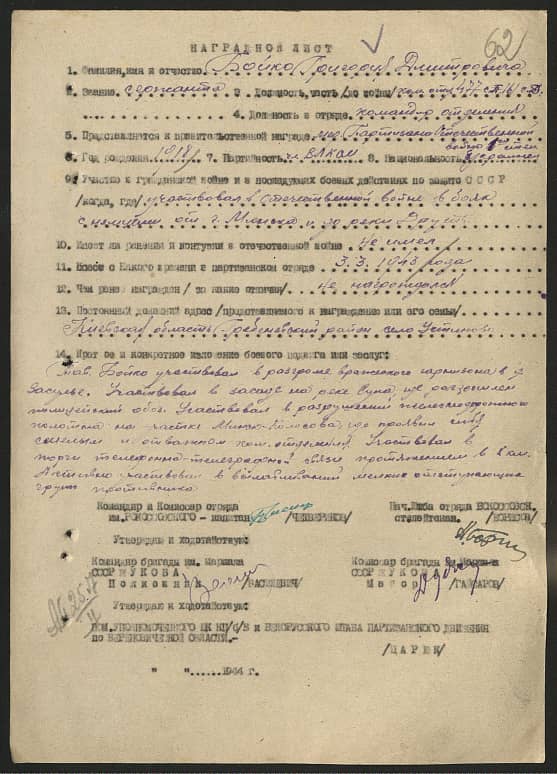 62
НАГРАДНОЙ ЛИСТ
1. Фамилия, имя и отчество Бойко Григория Дмитровича
2. Звание сержанта 3. Должность, часть /до войны/ ком. отд. 477
4. Должность в отряде командир отделения
5. Представляется к правительственной награде мед. Партизана Отечественной
войны
6. Год рождения 1918 7. Партийность чл ВЛКСМ 8. Национальность украинец
9. Участие в гражданской войне и в последующих боевых действиях по защите СССР
/когда, где/ участвовал в отечественной войне в боях
с немцами от г. Минска и до реки Друть
10. Имеет ли ранения и контузии в отечественной войне Не имел
11. Какого времени в партизанском отряде 3.3.1943 года
12. Чем ранее награжден /за какие отличия/ Не награждался
13. Постоянный домашний адрес /представляемого к награждению или его семьи/
Киевская область Гребеневский район село
14. Краткое и конкретное изложение боевого подвига или заслуг:
тов. Бойко участвовал в разгроме вражеского гарнизона в д
Засулье. Участвовал в засаде на реке Сула, где разгромлен
полицейский обоз. Участвовал в разрушении железнодорожного
полотна на участке Минск-Колосово, где проявил себя
смелым и отважным ком. отделения. Участвовал в
телефонно-телеграфной связи протяжением в км.
Активно участвовал в вылавливании мелких отступающих
групп противника.
Командир и Комиссар отряда
им. РОКОССОВСКОГО - капитан /ЧЕВЕРИКОВ/
Нач. Штаба отряда РОКОССОВСК.
ст. лейтенан. /БОРИСОВ/
Утверждаю и ходатайствую:
Командир бригады им. Маршала
СССР ЖУКОВА
Полковник /ВАСИЛЕВИЧ/
Комиссар бригады
СССР ЖУКОВА
Майор /ГАЙСАРОВ/
Утверждаю и ходатайствую:
ПОМ. УПОЛНОМОЧЕННОГО ЦК КП/б/Б и БЕЛОРУССКОГО ШТАБА ПАРТИЗАНСКОГО ДВИЖЕНИЯ
по БАРАНОВИЧСКОЙ ОБЛАСТИ.-
/ЦАРЮК/
" " ......1944 г.